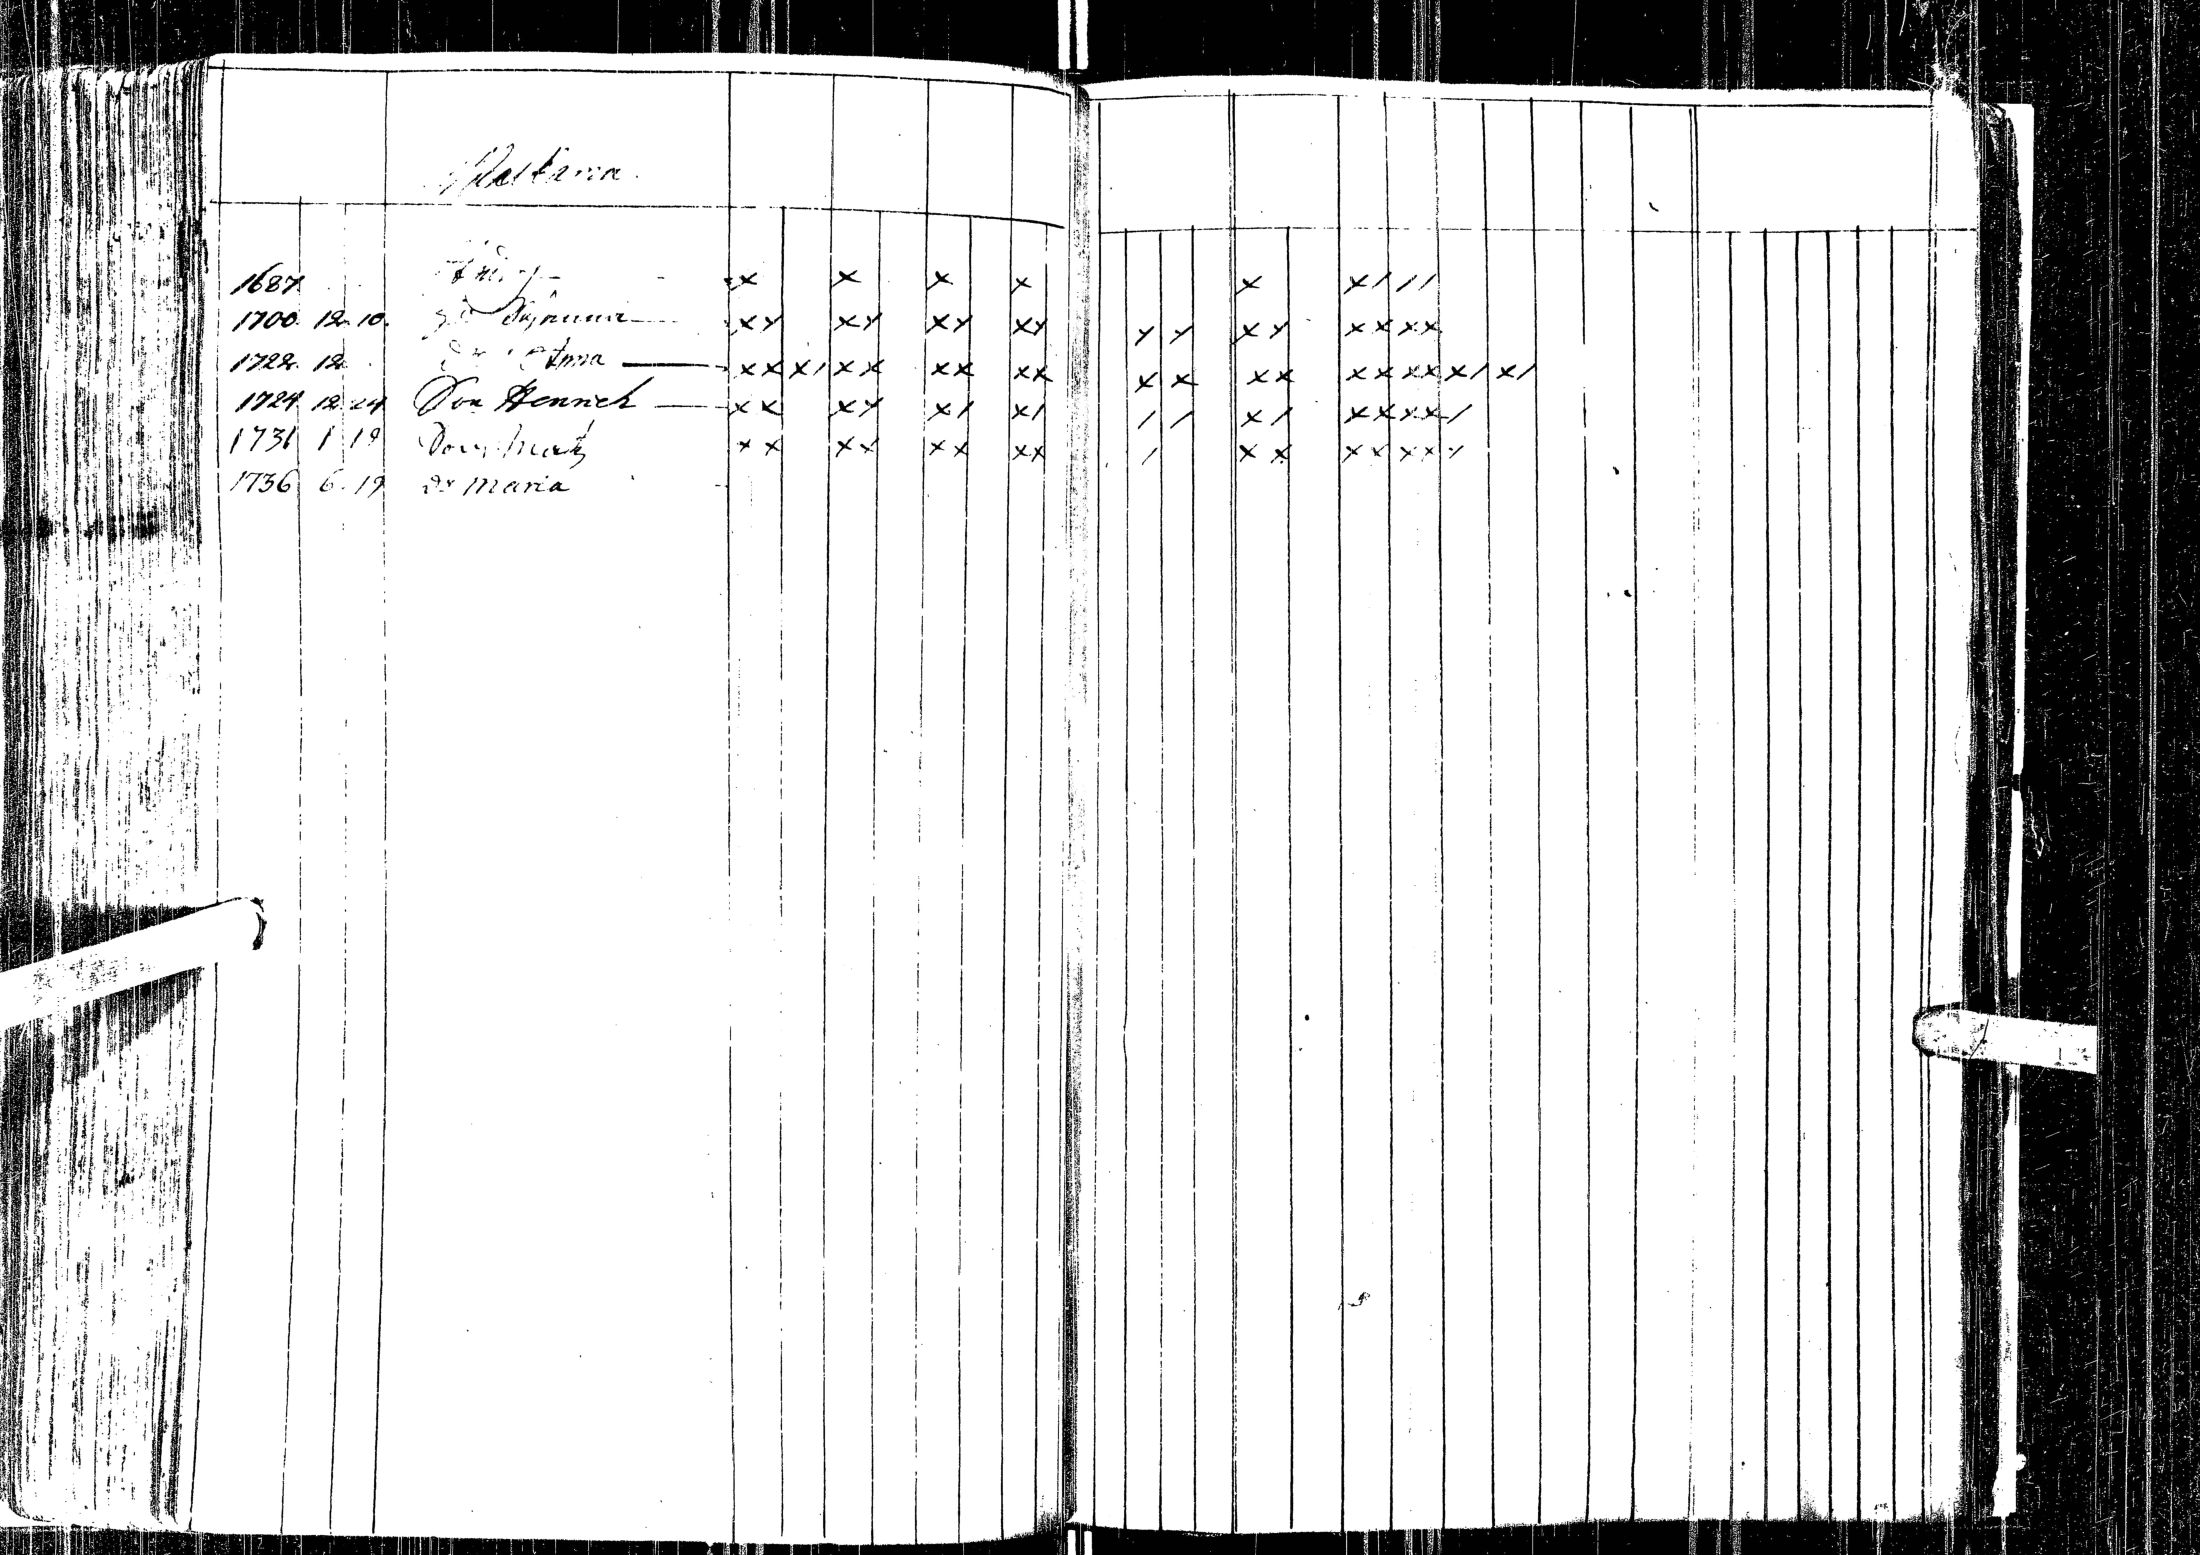 1687 x x x x x x / / /
1700 12 10. xy xy xy xy y y xy xxxx
1722 12 Anna xxx/ xx xx xx x x xx xxxxx/x/
1724 12 24 Son Henrich xx xy x/ x/ / / x/ xxxx/
1731 1 19 Son Matz xx xx xx xx / xx xxxx/
1736 6 19 dr Maria